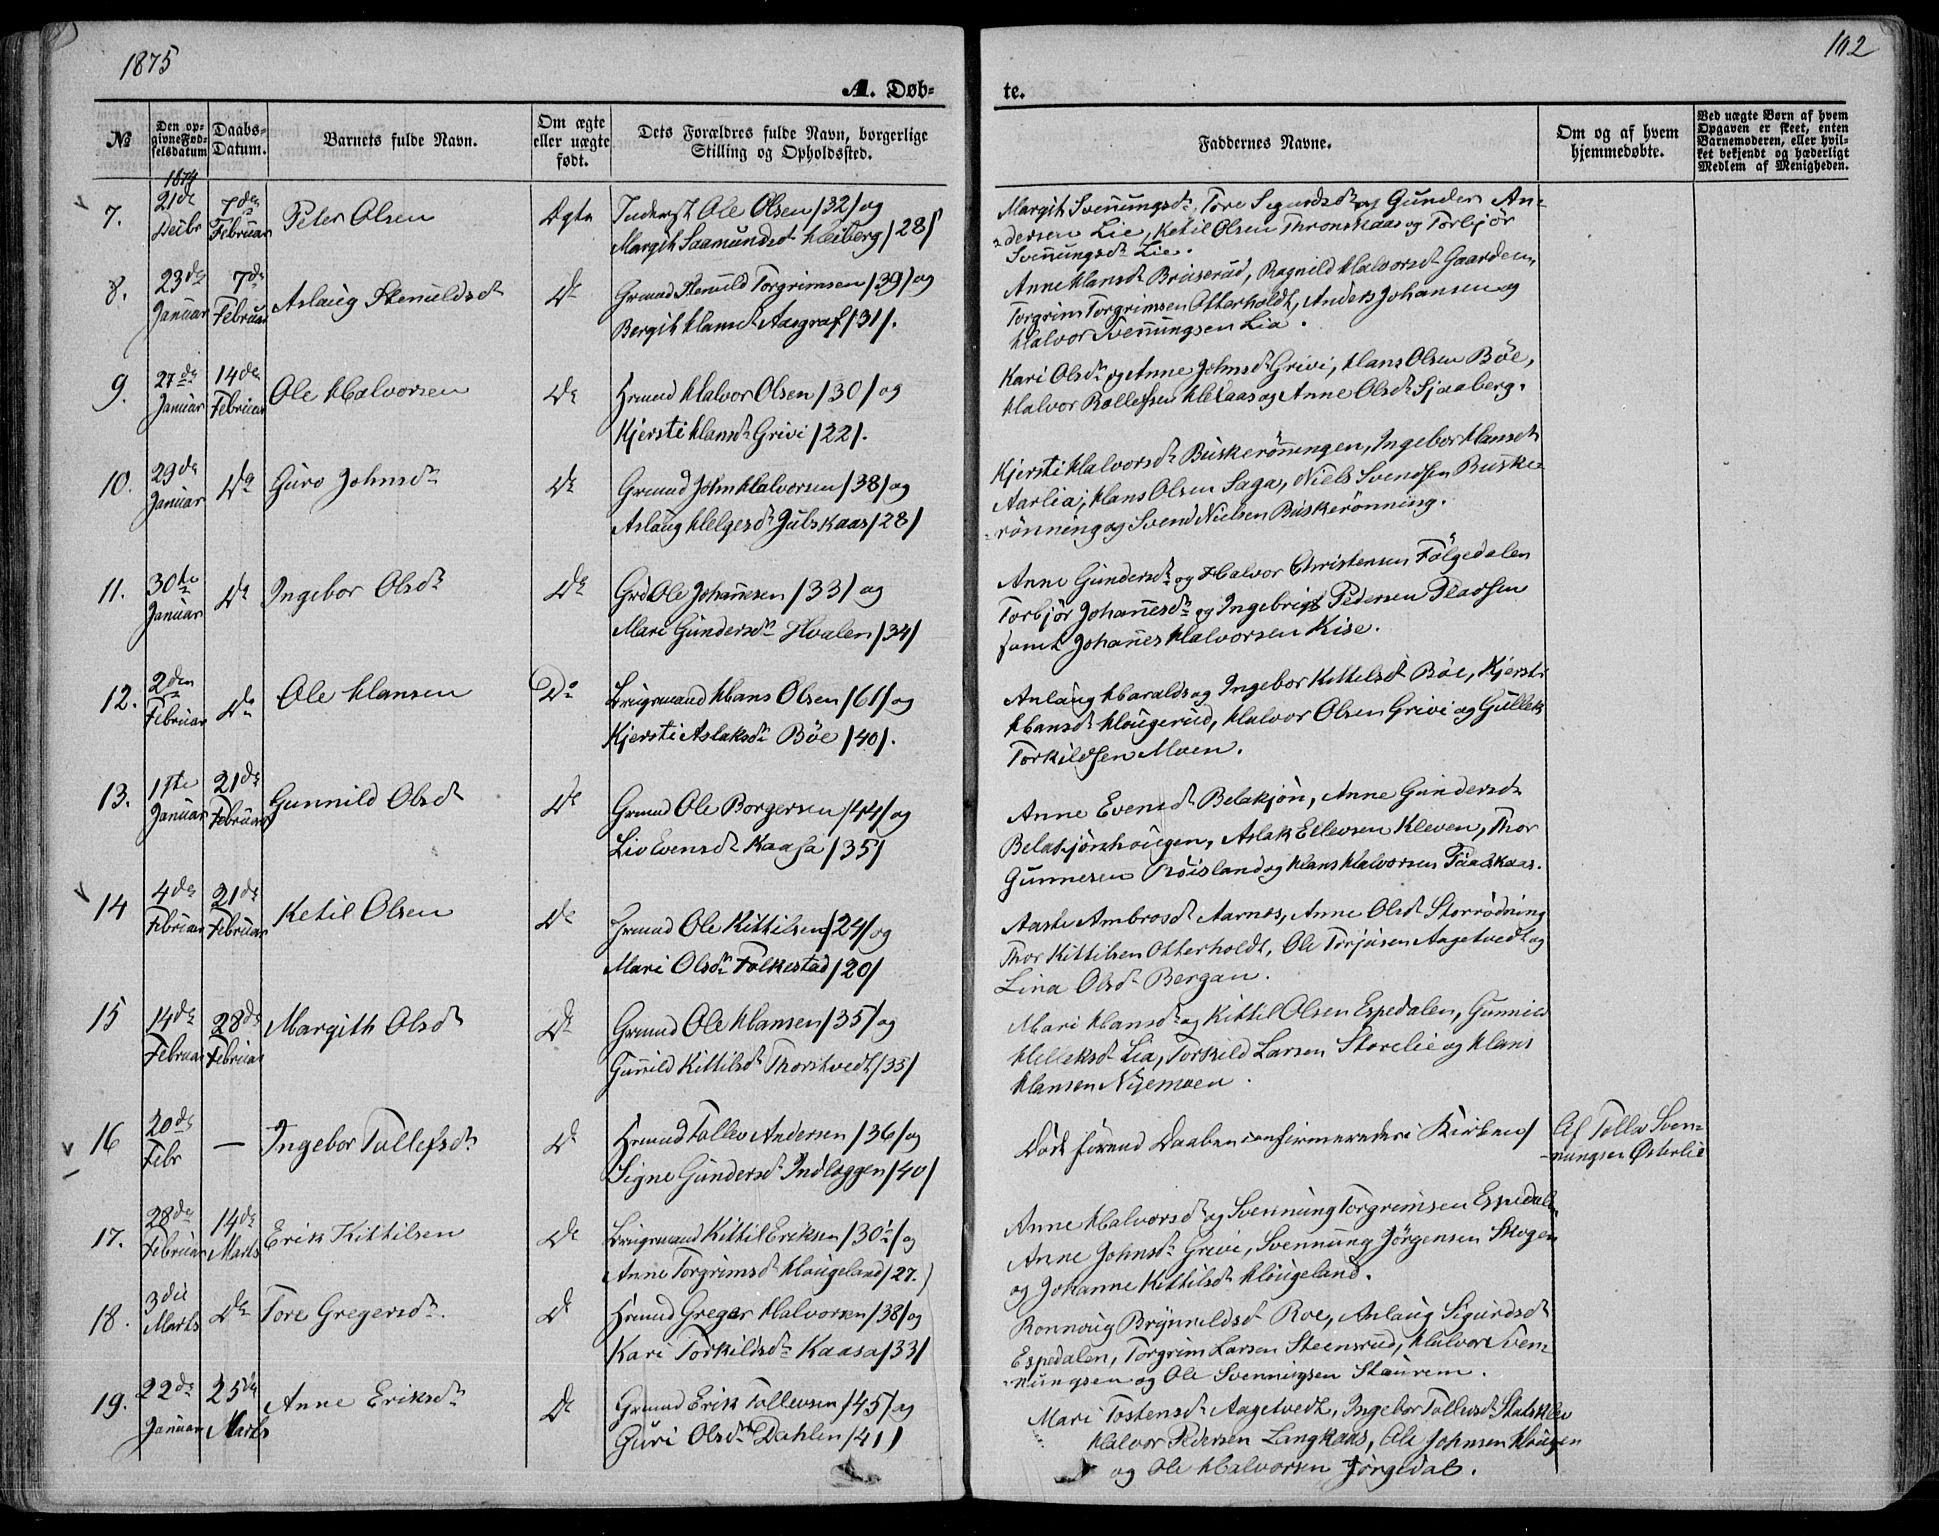 1875
102
A. Døb-
te.
№
Den op-
givne Fød-
selsdatum
Daabs-
Datum.
Barnets fulde Navn.
Om ægte
eller uægte
født.
Dets Forældres fulde Navn, borgerlige
Stilling og Opholdssted.
Faddernes Navne.
Om og af hvem
hjemmedøbte.
Ved uægte Born af hvem
Opgaven er skeet, enten
Barnemoderen, eller hvil-
ket bekjendt og hæderligt
Medlem af Menigheden.
1874
7. 21de Decbr 7de Februar Peter Olsen Ægte Inderst Ole Olsen /32/ og
Margith Saamundsdr Heiberg /28/
Margith Svennungsdr, Tore Sigurdsdr og Gunder An-
dersen Lie, Ketil Olsen Thronskaas og Torbjør
Svennungsdr Lie.
8. 23de Januar 7de Februar Aslaug Stenuldsdr Do Grmd Stenuld Torgrimsen /39/ og
Bergith Hansdr Aasgraf /31/.
Anne Hansdr Bruserud, Ragnild Halvorsdr Gaarden,
Torgrim Torgrimsen Otterholdt, Anders Johansen og
Halvor Svennungsen Lia.
9. 27de Januar 14de Februar Ole Halvorsen Do Hrmd Halvor Olsen /30/ og
Kjersti Hansdr Grivi /22/.
Kari Olsdr og Anne Johnsdr Grivi, Hans Olsen Böe,
Halvor Rollefsen og Anne Olsdr Sjaaberg.
10. 29de Januar Do Guro Johnsdr Do Grmd John Halvorsen /38/ og
Aslaug Helgesdr Julskaas /28/
Kjersti Halvorsdr Buskerönningen, Ingebor Hansdr
Aarlia, Hans Olsen Saga, Niels Svendsen Buske-
rönning og Svend Nielsen Buskerönning.
11. 30te Januar Do Ingebor Olsdr Do Grd Ole Johannesen /33/ og
Mari Gundersdr Hvalen /34/
Anne Gundersdr og Halvor Christensen Fölgedalen
Torbjör Johannesdr og Ingebrigt Pedersen
samt Johannes Halvorsen Kise.
12. 2den Februar Do Ole Hansen Do Brugmand Hans Olsen /61/ og
Kjersti Aslaksdr Böe /40/.
Anlaug Haralds og Ingebor Kittelsdr Böe, Kjersti
Hansdr Hougerud, Halvor Olsen Grivi og Gullek
Torkildsen Moen.
13. 1ste Januar 21de Februar Gunnild Olsdr Do Grmd Ole Borgersen /44/ og
Liv Evensdr Kaasa /35/
Anne Evensdr Belakjön, Anne Gundersdr
Belakjönhougen, Aslak Ellevsen Kleven, Thor
Gunnesen Röisland og Hans Halvorsen Taaskaas.
14 4de Februar 21de Februar Ketil Olsen Do Hrmd Ole Kittilsen /24/ og
Mari Olsdr Folkestad /20/
Aaste Ambrosdr Aarnes, Anne Olsdr Storrödning
Thor Kittilsen Otterholdt, Ole Torjusen Aagetvedt og
Lina Olsdr Bergan.
15 14de Februar 28de Februar Margith Olsdr Do Grmd Ole Hansen /35/ og
Gunild Kittilsdr Thorstvedt /35/
Mari Hansdr og Kittil Olsen Espedalen, Gunnild
Helleksdr Lia, Torkild Larsen Storelie og Hans
Hansen Nyemoen.
16 20de Febr — Ingebor Tollefsdr Do Hrmd Tollev Andersen /36/ og
Signe Gundersdr Indlæggen /40/
Död forend Daaben confirmeredes i Kirken/
Af Tollev Sven-
nungsen Østerlie
17. 28de Februar 14de Marts Erik Kittilsen Do Brugmand Kittil Eriksen /30/ og
Anne Torgrimsdr Hougeland /27./
Anne Halvorsdr og Svennung Torgrimsen Espedalen
Anne Johnsdr Grivi, Svennung Jörgensen Skogen
og Johanne Kittilsdr Hougeland.
18. 3die Marts Do Tore Gregersdr. Do Hrmd Greger Halvorsen /38/ og
Kari Torkildsdr Kaasa /33/
Ronnoug Brynnildsdr Roe, Anlaug Sigurdsdr
Espedalen, Torgrim Larsen Steensrud, Halvor Sven-
nungsen og Ole Svennungsen Staurem.
19. 22de Januar 25de Marts Anne Eriksdr Do Grmd Erik Tollevsen /45/ og
Guri Olsdr Dahlen /41/
Mari Tostensdr Aagetvedt, Ingebor Tollevsdr
Halvor Pedersen Langkaas, Ole Johnsen Hougen
og Ole Halvorsen Jörgedal.